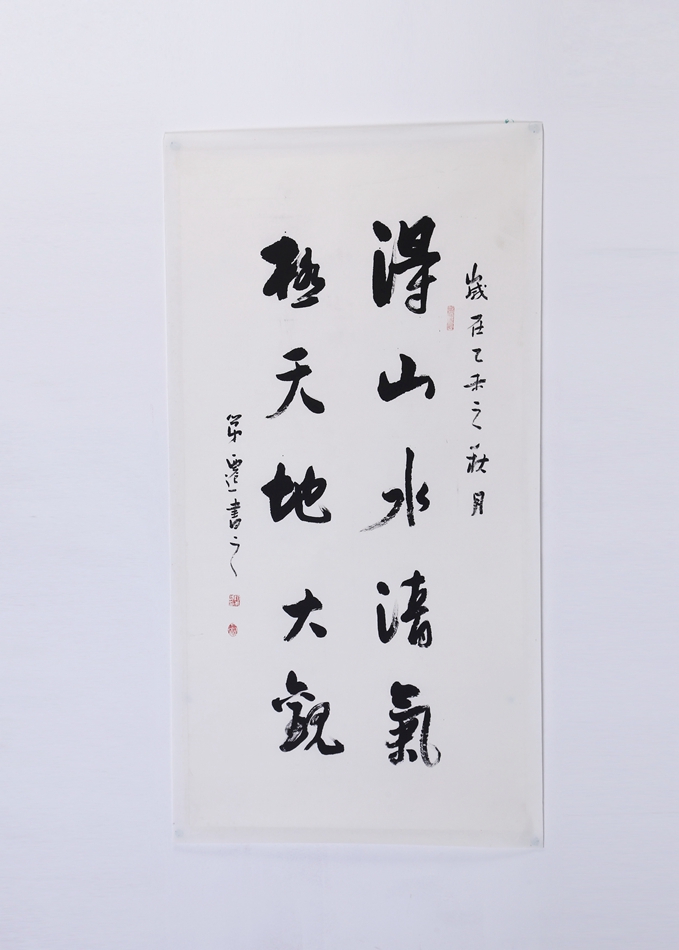 歲在乙未之秋月
得山水清氣
極天地大觀
書之